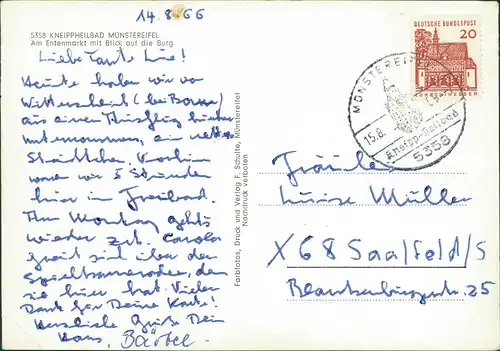 14.8.66
5358 KNEIPPHEILBAD MÜNSTEREIFEL
Am Entenmarkt mit Blick auf die Burg
Liebe Tante Luise!
Heute haben wir von
Witterschlick (bei Bonn)
aus einen Ausflug hierher
unternommen, ein nettes
Städtchen. Vorhin
waren wir 5 Stunden
hier im Freibad.
Am Montag geht's
wieder zck. Carola
freut sich über den
Spielkameraden, den
sie hier hat. Vielen
Dank für Deine Karte!
Herzliche Grüße Dein
Hans, Bärbel
Farbfotos, Druck und Verlag F. Schulte, Münstereifel
Nachdruck verboten
DEUTSCHE BUNDESPOST
20
MÜNSTEREIFEL
15.8.
Kneipp-Heilbad
5358
Fräulein
Luise Müller
X 68 Saalfeld/S
Blankenburgerstr. 25